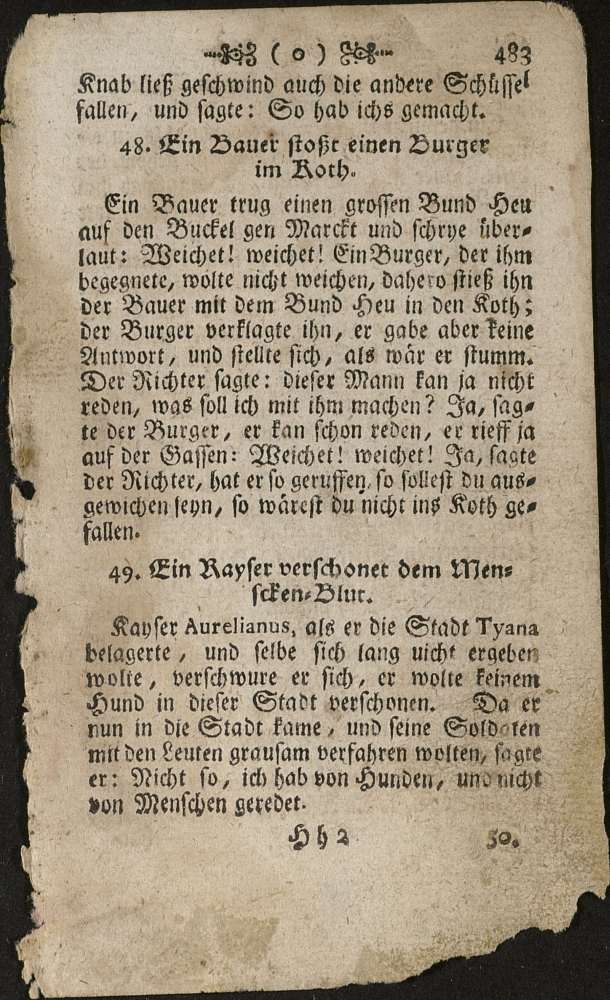 ( o ) 483
Knab ließ geschwind auch die andere Schüssel
fallen, und sagte: So hab ichs gemacht.
48. Ein Bauer stoßt einen Burger
im Koth.
Ein Bauer trug einen grossen Bund Heu
auf den Buckel gen Marckt und schrye über-
laut: Weichet! weichet! Ein Burger, der ihm
begegnete, wolte nicht weichen, dahero stieß ihn
der Bauer mit dem Bund Heu in den Koth;
der Burger verklagte ihn, er gabe aber keine
Antwort, und stellte sich, als wär er stumm.
Der Richter sagte: dieser Mann kan ja nicht
reden, was soll ich mit ihm machen? Ja, sag-
te der Burger, er kan schon reden, er rieff ja
auf der Gassen: Weichet! weichet! Ja, sagte
der Richter, hat er so geruffen, so sollest du aus-
gewichen seyn, so wärest du nicht ins Koth ge-
fallen.
49. Ein Kayser verschonet dem Men-
scken-Blut.
Kayser Aurelianus, als er die Stadt Tyana
belagerte, und selbe sich lang uicht ergeben
wolte, verschwure er sich, er wolte keinem
Hund in dieser Stadt verschonen. Da er
nun in die Stadt kame, und seine Soldaten
mit den Leuten grausam verfahren wolten, sagte
er: Nicht so, ich hab von Hunden, und nicht
von Menschen geredet.
Hh 2 50.